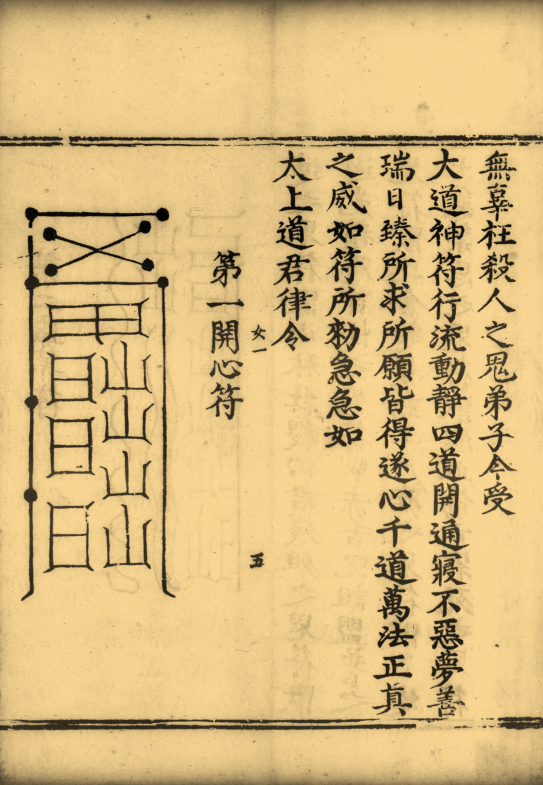 無辜枉殺人之鬼弟子今受
大道神符行流動靜四道開通寢不惡夢善
瑞日臻所求所願皆得遂心千道萬法正真
之威如符所勑急急如
太上道君律令
女一
五
第一開心符
山山山山
甲日日日